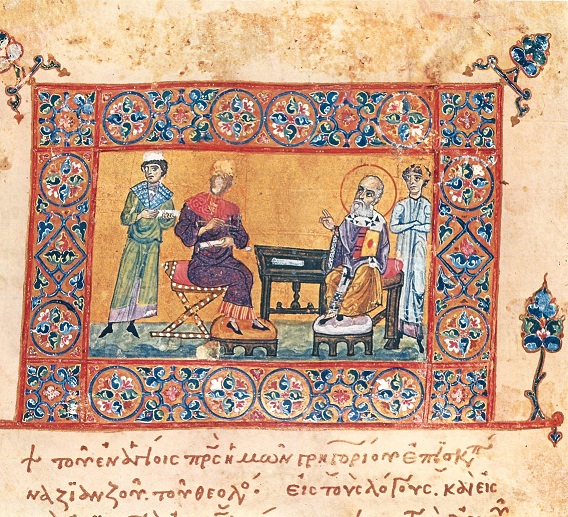 + τοῦ ἐν ἁγίοις πρς ἡμῶν γρηγορίου ἐπισκπ
ναζιανζοῦ. τοῦ θεολό. εἰς τοὺς λόγους. καὶ εἰς